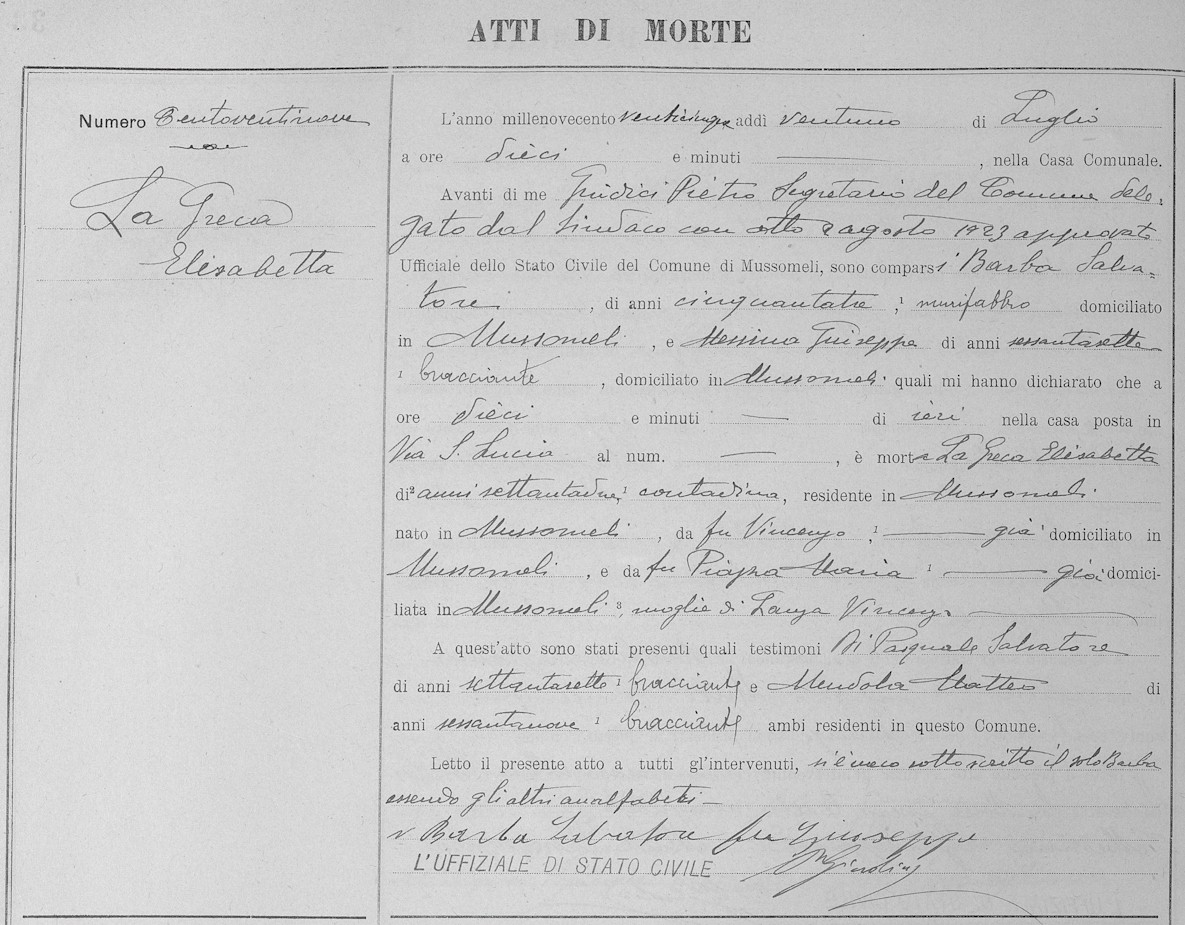 ATTI DI MORTE
Numero Centoventinove
La Greca
Elisabetta
L'anno millenovecento venticinque addì ventuno di Luglio
a ore dieci e minuti , nella Casa Comunale.
Avanti di me Giudici Pietro Segretario del Comune dele-
gato dal Sindaco con atto 2 agosto 1923 approvato
Ufficiale dello Stato Civile del Comune di Mussomeli, sono comparsi Barba Salva-
tore , di anni cinquantatre ,¹ domiciliato
in Mussomeli , e Messina Giuseppe di anni sessantasette
¹ bracciante , domiciliato in Mussomeli quali mi hanno dichiarato che a
ore dieci e minuti — di ieri nella casa posta in
Via S. Lucia al num. — , è morta La Greca Elisabetta
di² anni settantadue,¹ contadina, residente in Mussomeli
nato in Mussomeli , da fu Vincenzo ,¹ — già domiciliato in
Mussomeli , e da fu Piazza Maria ¹ — già domici-
liata in Mussomeli ³, moglie di Lanza Vincenzo —
A quest'atto sono stati presenti quali testimoni Di Pasquale Salvatore
di anni settantasette ¹ bracciante e Mendola Matteo di
anni sessantanove ¹ bracciante ambi residenti in questo Comune.
Letto il presente atto a tutti gl'intervenuti, si è meco sottoscritto il solo Barba
essendo gli altri analfabeti —
Barba Salvatore fu Giuseppe
L'UFFIZIALE DI STATO CIVILE